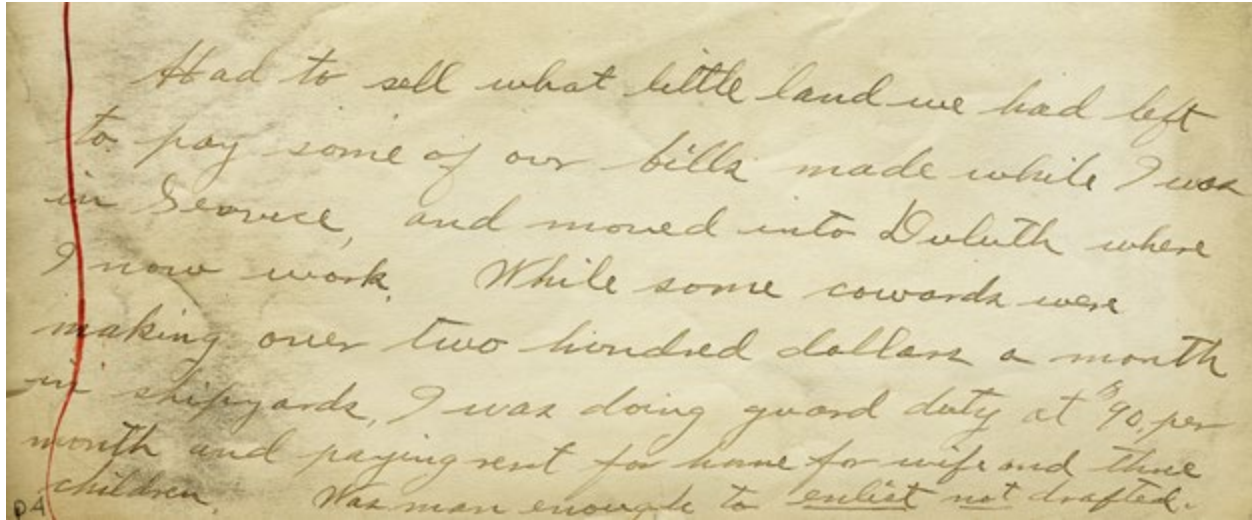 Had to sell what little land we had left
to pay some of our bills made while I was
in Service, and moved into Duluth where
I now work. While some cowards were
making over two hundred dollars a month
in shipyards, I was doing guard duty at $90. per
month and paying rent for home for wife and three
children. Was man enough to enlist not drafted.
P4